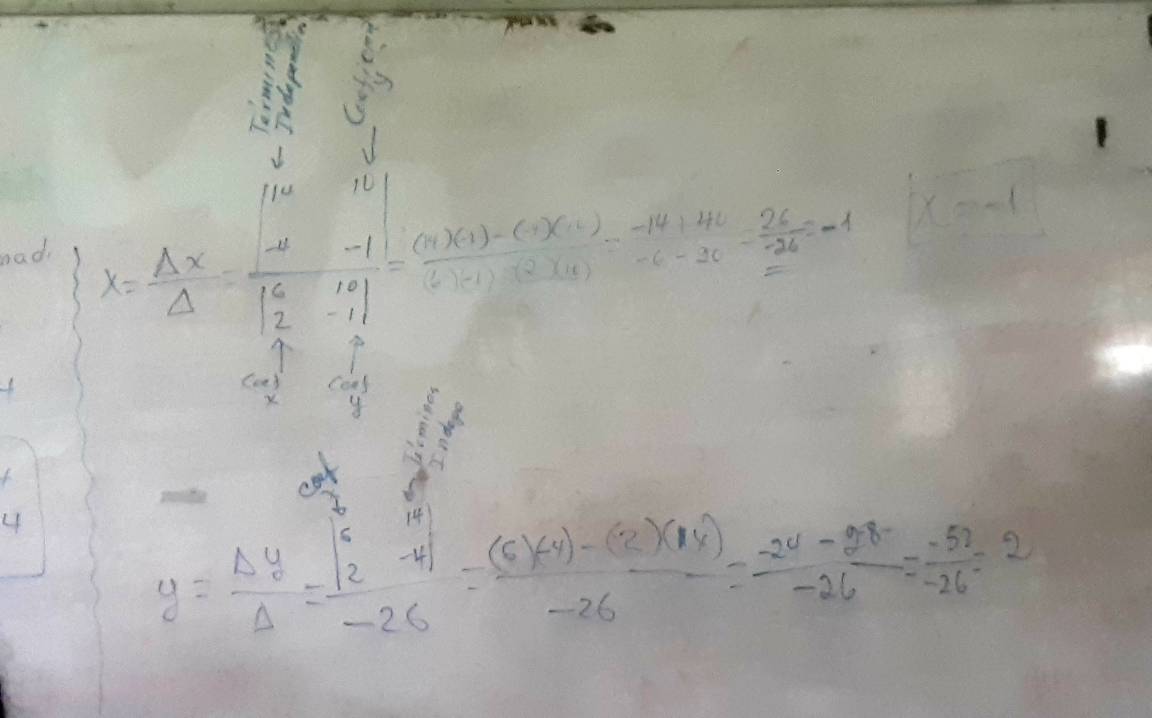 Términos
Independien
Coeficien
y
x = Δx / Δ = |14 10 / -4 -1| / |6 10 / 2 -1| = (14)(-1) - (-4)(10) / (6)(-1) (2)(10) = -14 + 40 / -6 - 20 = 26 / -26 = -1
x = -1
Coef
x
Coef
y
nad.
4
Coef
x
Términos
Indepe
y = Δy / Δ = |6 14 / 2 -4| / -26 = (6)(-4) - (2)(14) / -26 = -24 - 28 / -26 = -52 / -26 = 2